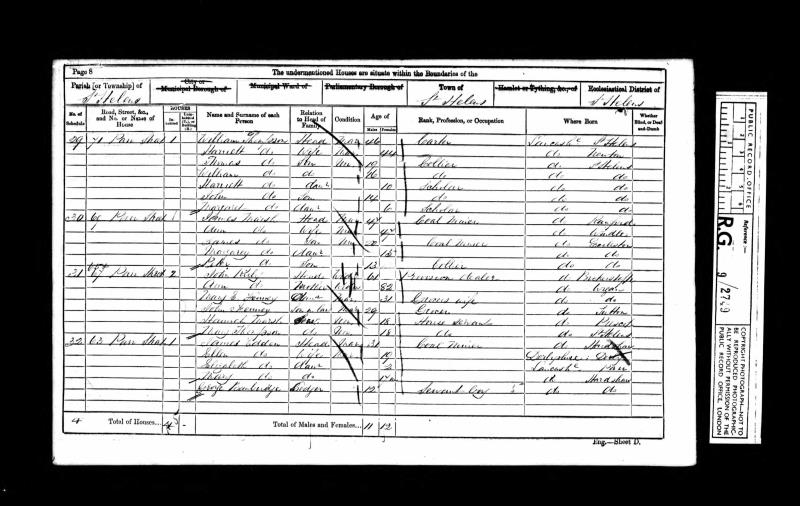 Page 8
The undermentioned Houses are situate within the Boundaries of the
Parish [or Township] of
City or
Municipal Borough of
Municipal Ward of
Parliamentary Borough of
Town of
Hamlet or Tything, &c., of
Ecclesiastical District of
St Helens
St Helens
St Helens
No. of Schedule
Road, Street, &c., and No. or Name of House
HOUSES
In-habited
Name and Surname of each Person
Relation to Head of Family
Condition
Age of
Males
Females
Rank, Profession, or Occupation
Where Born
Whether Blind, or Deaf-and-Dumb
29 71 Parr Street 1 William Thompson Head Mar 46 Carter Lancashe St Helens
Harriett do Wife Mar 44 do Newton
James do Son Un 19 Collier do St Helens
William do do 16 do do do
Harriett do daur 10 Scholar do do
John do Son 14 do do do
Margaret do daur 6 Scholar do do
30 Parr Street 1 James Marsh Head Mar 47 Coal Miner do Rainford
Ann do Wife Mar 47 do Windle
James do Son Un 22 Coal Miner do
Margarey do daur 15 do do
Peter do Son 13 Collier do do
31 Parr Street 2 John Head 61 Provision Dealer do
Ann do Mother 82 do
Mary E. daur Mar 31 Grocers wife do do
John Son in law Mar 29 Grocer do Sutton
Marsh Un 18 House Servant do Prescot
Mary Thompson do Un 18 do do St Helens
32 63 Parr Street 1 James Head Mar 31 Coal Miner do Hardshaw
Ellen do Wife Mar Derbyshire Derby
Elizabeth do daur 2 Lancashe Parr
Mary do do do Hardshaw
George Lodger 12 Servant Boy do do
4 Total of Houses... 4 - Total of Males and Females... 11 12
Eng.—Sheet D.
PUBLIC RECORD OFFICE
Reference :-
R.G. 9/2749
COPYRIGHT PHOTOGRAPH—NOT TO BE REPRODUCED PHOTOGRAPHICALLY WITHOUT PERMISSION OF THE PUBLIC RECORD OFFICE, LONDON